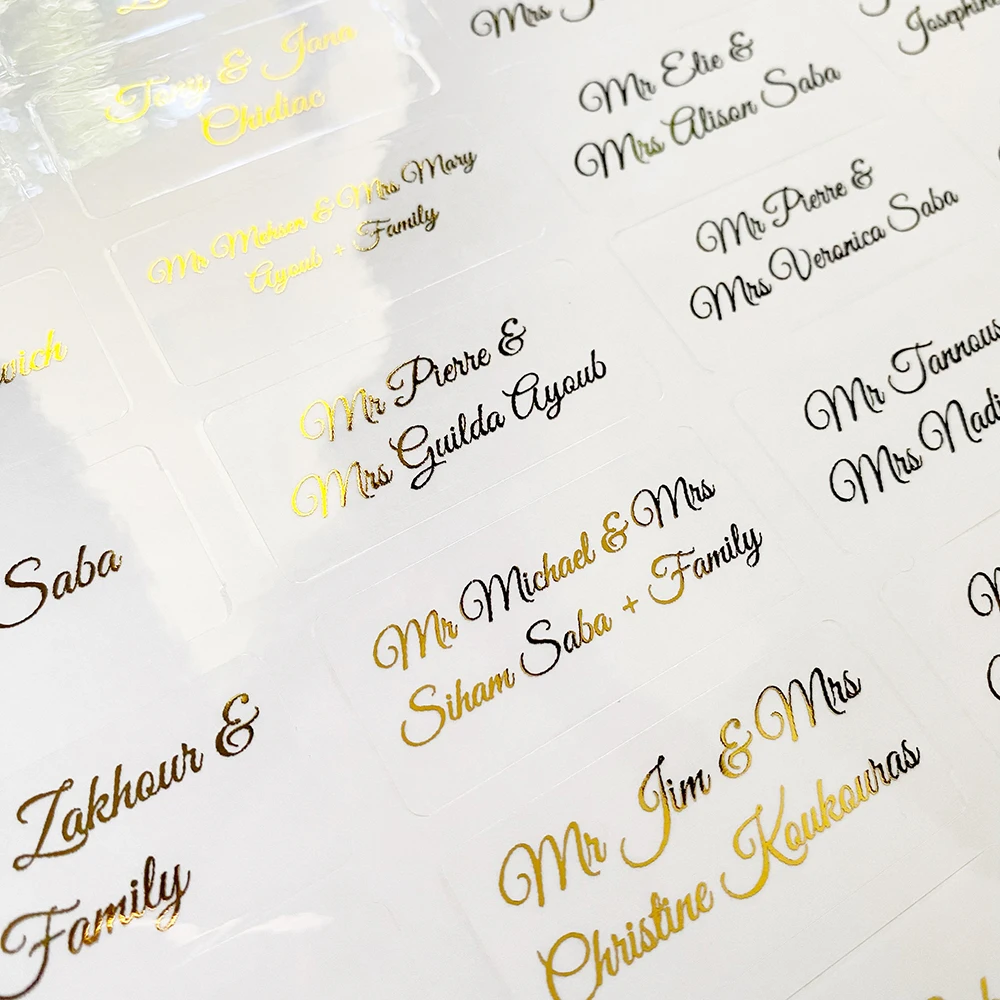 Mrs
Tony & Jana
Chidiac
Mr Elie &
Mrs Alison Saba
Mr Mehsen & Mrs Mary
Ayoub + Family
Mr Pierre &
Mrs Veronica Saba
Mr Pierre &
Mrs Guilda Ayoub
Mr Tannous
Mrs
Saba
Mr Michael & Mrs
Siham Saba + Family
Zakhour &
Family
Mr Jim & Mrs
Christine Koukouras